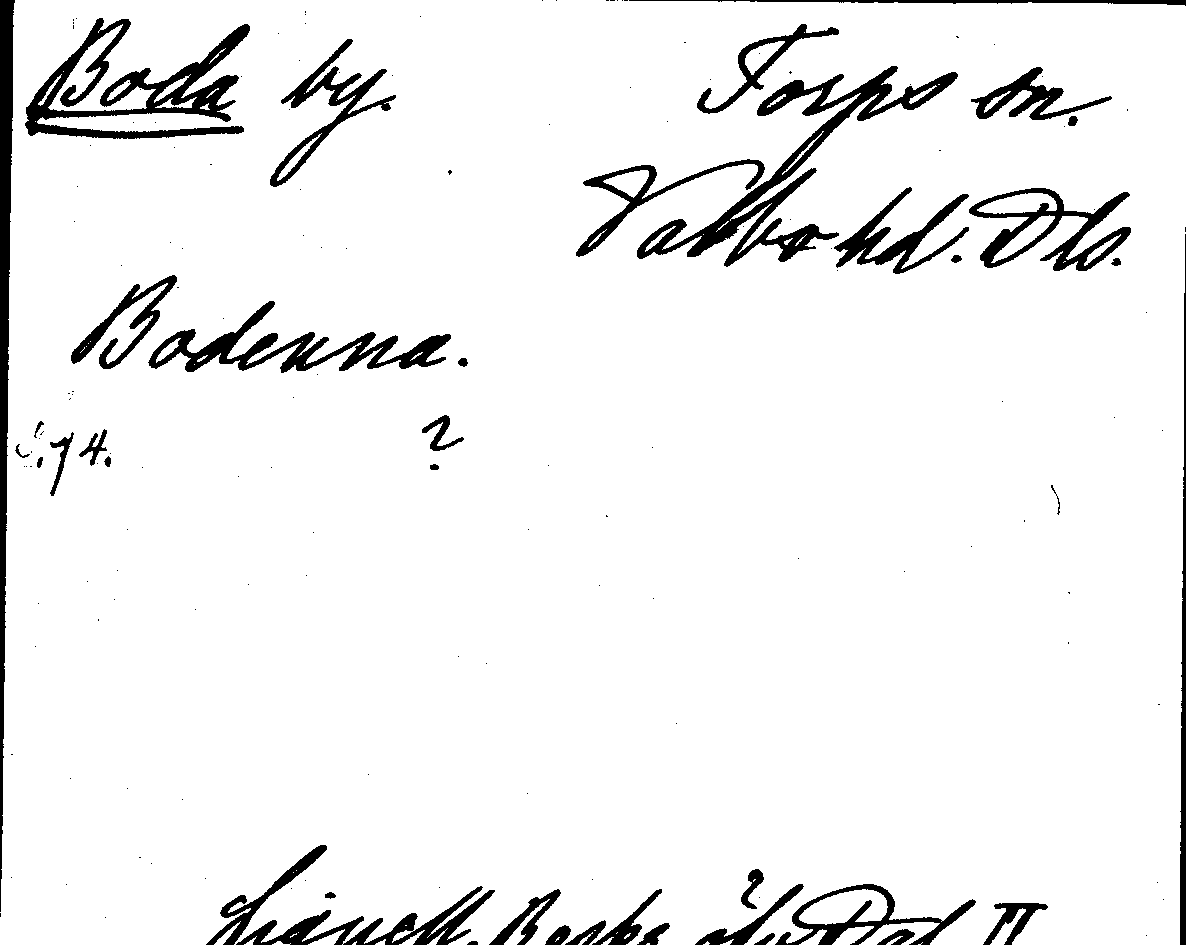 Boda by. Torps sn.
Valbo hd. Dls.
Bodenna.
S.74. ?
Lignell, Beskr. öfv. Dal II